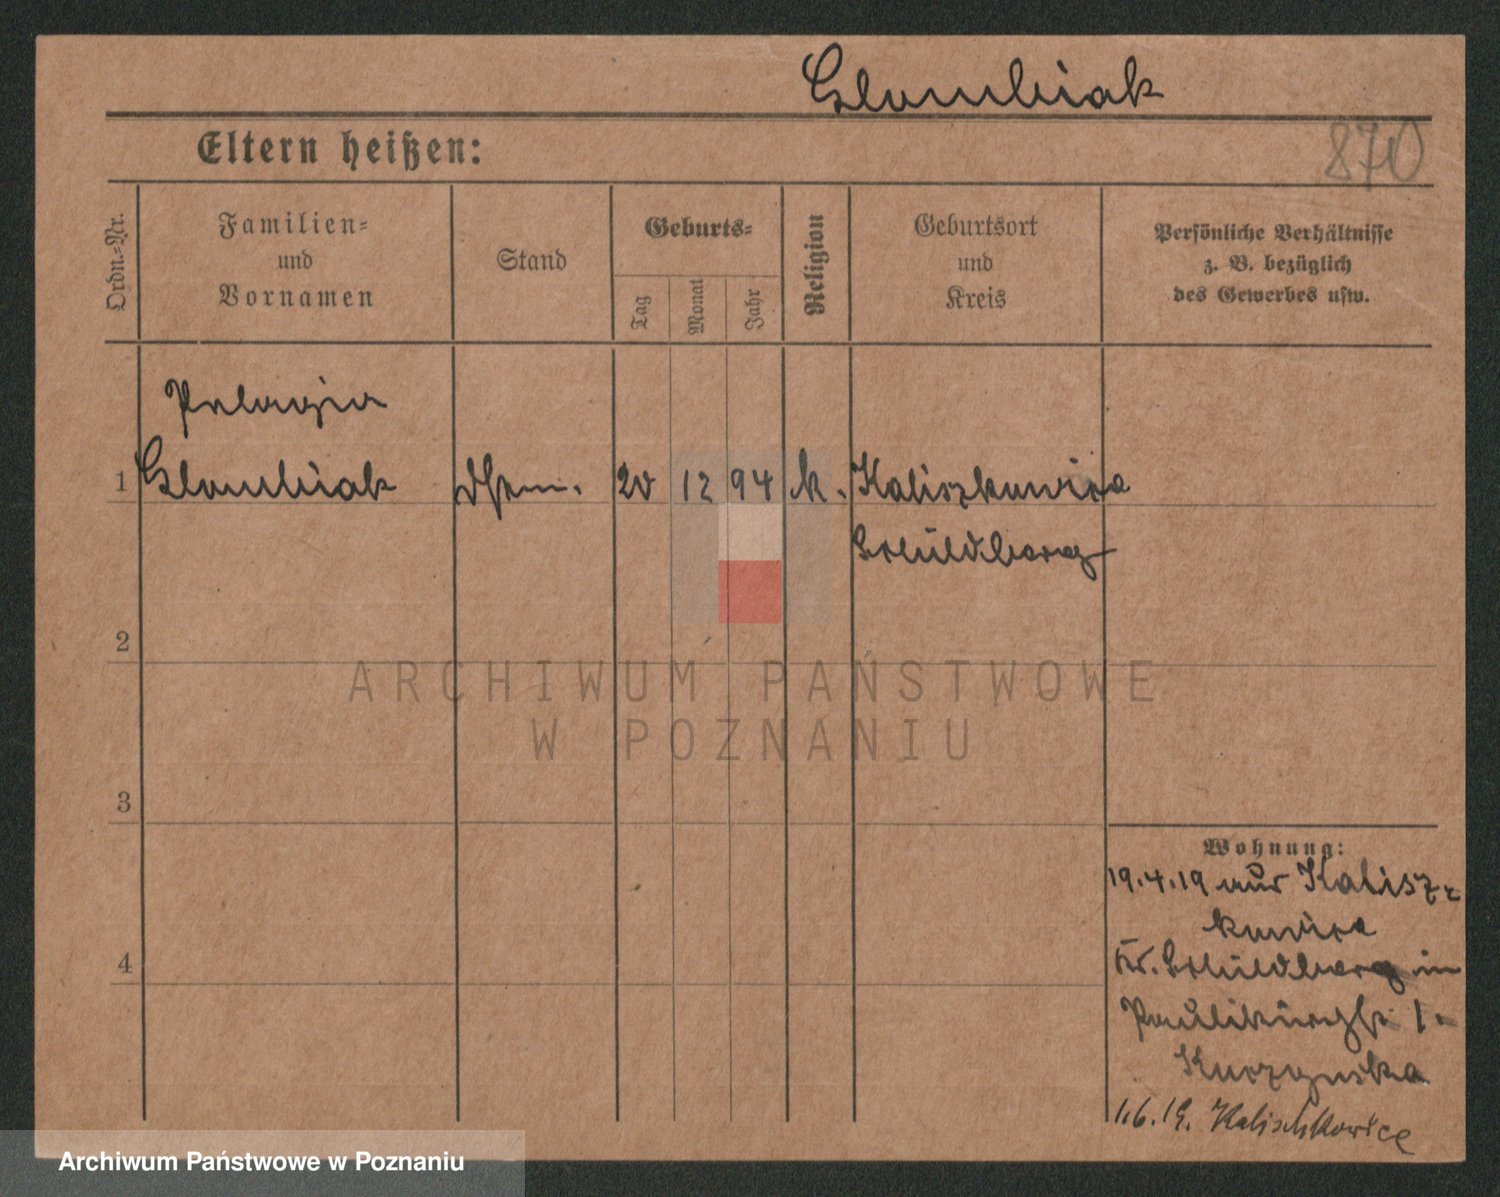 Glombiak
Eltern heißen:
870
Ordn.-Nr.
Familien-
und
Vornamen
Stand
Geburts-
Tag
Monat
Jahr
Religion
Geburtsort
und
Kreis
Persönliche Verhältnisse
z. B. bezüglich
des Gewerbes usw.
Pelagia
1 Glombiak 20 12 94 k. Kaliszkowice
Schildberg
2
ARCHIWUM PAŃSTWOWE
W POZNANIU
3
4
Wohnung:
19.4.19 aus Kalisz-
kowice
Kr. Schildberg in
Paulikirchstr. 1.
1.6.19. Kalischkowice
Archiwum Państwowe w Poznaniu